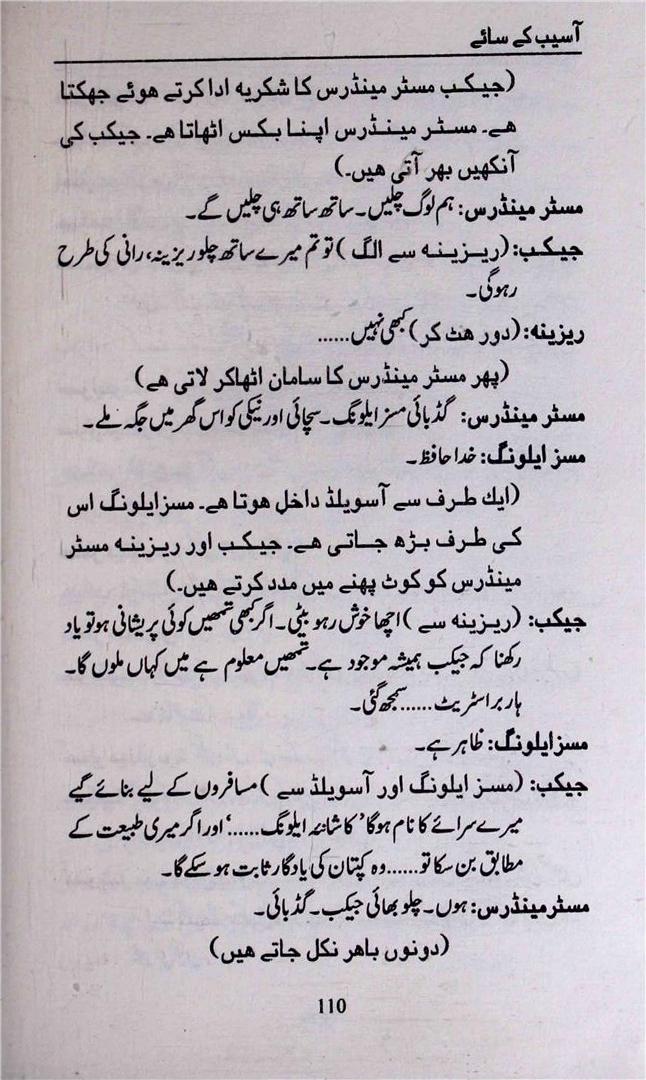 آسیب کے سائے
(جیکب مسٹر مینڈرس کا شکریہ ادا کرتے ہوئے جھکتا
ہے۔ مسٹر مینڈرس اپنا بکس اٹھاتا ہے۔ جیکب کی
آنکھیں بھر آتی ہیں۔)
مسٹر مینڈرس: ہم لوگ چلیں۔ ساتھ ساتھ ہی چلیں گے۔
جیکب: (ریزینہ سے الگ) تو تم میرے ساتھ چلو ریزینہ، رانی کی طرح
رہوگی۔
ریزینہ: (دور ہٹ کر) کبھی نہیں......
(پھر مسٹر مینڈرس کا سامان اٹھاکر لاتی ہے)
مسٹر مینڈرس: گڈبائی مسز ایلونگ۔ سچائی اور نیکی کو اس گھر میں جگہ ملے۔
مسز ایلونگ: خدا حافظ۔
(ایك طرف سے آسویلڈ داخل ہوتا ہے۔ مسز ایلونگ اس
کی طرف بڑھ جاتی ہے۔ جیکب اور ریزینہ مسٹر
مینڈرس کو کوٹ پہنے میں مدد کرتے ہیں۔)
جیکب: (ریزینہ سے) اچھا خوش رہو بیٹی۔ اگر کبھی تمھیں کوئی پریشانی ہو تو یاد
رکھنا کہ جیکب ہمیشہ موجود ہے۔ تمھیں معلوم ہے میں کہاں ملوں گا۔
ہاربر اسٹریٹ...... سمجھ گئی۔
مسز ایلونگ: ظاہر ہے۔
جیکب: (مسز ایلونگ اور آسویلڈ سے) مسافروں کے لیے بنائے گیے
میرے سرائے کا نام ہوگا ’کاشانۂ ایلونگ......‘ اور اگر میری طبیعت کے
مطابق بن سکا تو...... وہ کپتان کی یادگار ثابت ہو سکے گا۔
مسٹر مینڈرس: ہوں۔ چلو بھائی جیکب۔ گڈبائی۔
(دونوں باہر نکل جاتے ہیں)
110